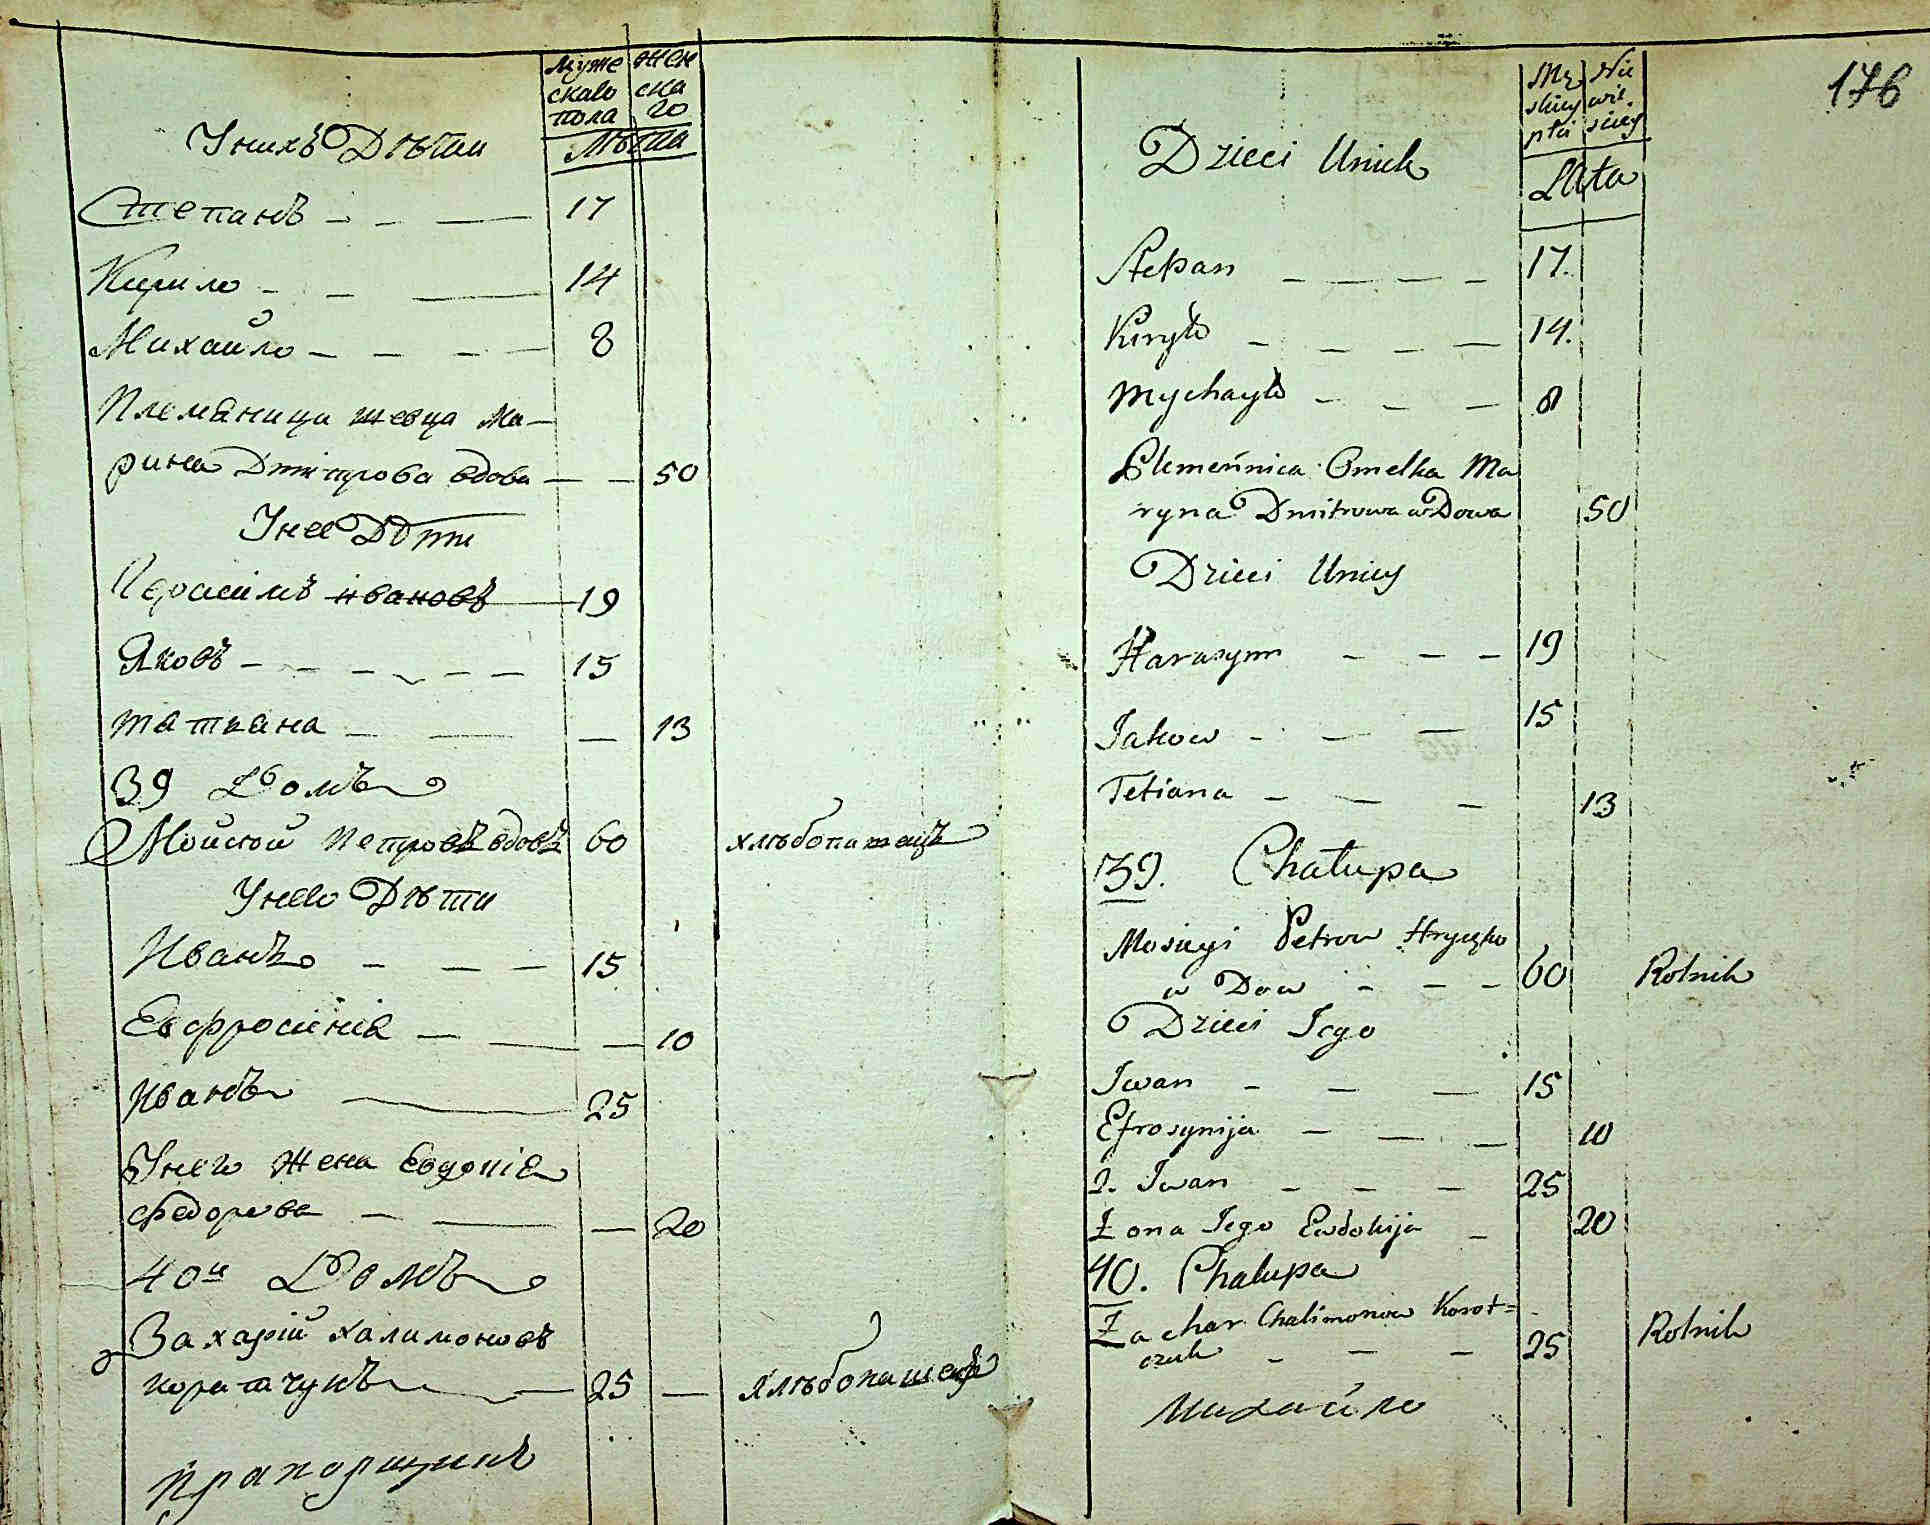 Муже скаго пола
Жен ска го
Лѣта
У нихъ Дѣти
Степанъ 17
Кирило 14
Михайло 8
Племяница шевца Ма-
рина Дмітрова вдова 50
У нее Дѣти
Герасимъ ивановъ 19
Яковъ 15
татьяна 13
39 Домъ
Мойсей Петровъ вдовъ 60 хлѣбопашецъ
У него Дѣти
Иванъ 15
Евфросинія 10
Иванъ 25
У него жена Евдокія
Федорова 20
40й Домъ
Захарій халимоновъ
коратчукъ 25 хлѣбопашецъ
Прапорщикъ
176
Mę skiey płci
Nie wie. skiey
Lata
Dzieci Unich
Stepan 17.
Kiryło 14.
Mychayło 8
Plemeńnica Omelka Ma
ryna Dmitrowa w Dowa 50
Dzieci Uniey
Harasym 19
Jakow 15
Tetiana 13
39. Chałupa
Mosieyi Petrow Hryczko
w Dow 60 Rolnik
Dzieci Jego
Iwan 15
Efrosynija 10
2. Iwan 25
Żona Jego Ewdokija 20
40. Chalupa
Zachar Chalimonow Korot=
czuk 25 Rolnik
Михайло